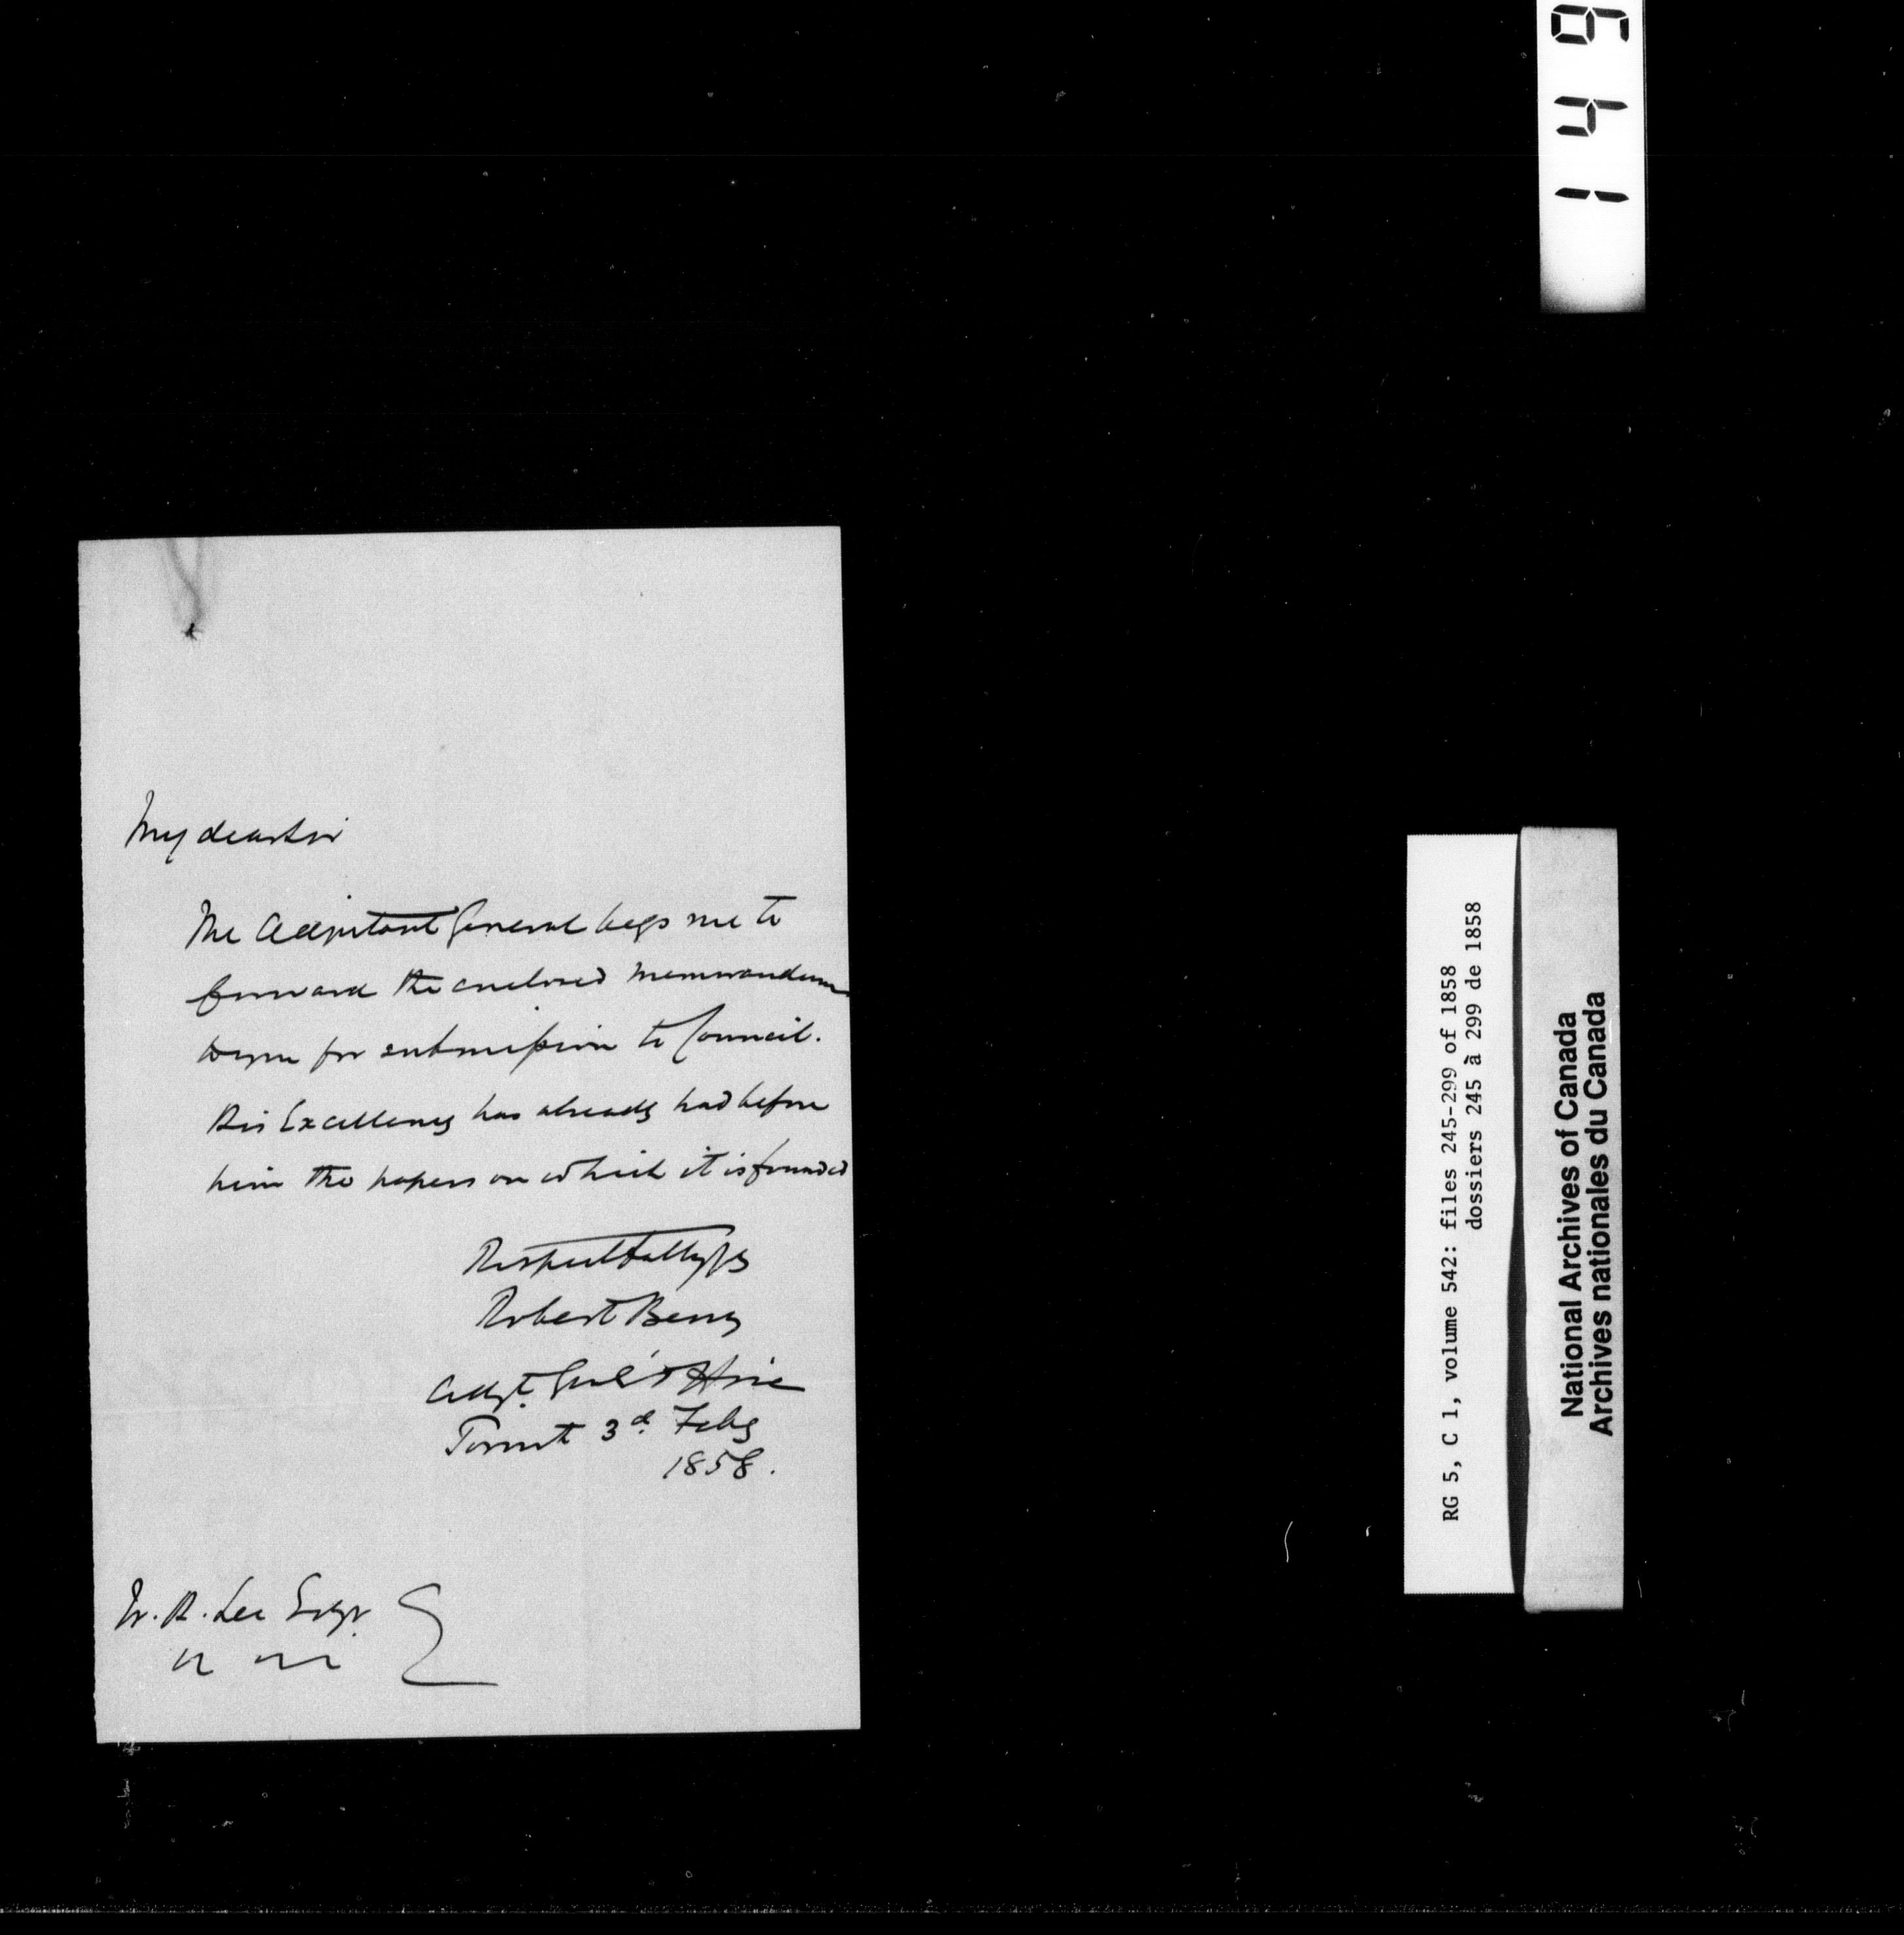 My dear Sir
The Adjutant General begs me to
forward the enclosed Memorandum
to you for submission to Council.
His Excellency has already had before
him the papers on which it is founded
Respectfully yrs
Robert Berry
Adjt. Genl's Office
Toronto 3d. Feby
1858.
W. H. Lee Esqr.
RG 5, C 1, volume 542: files 245-299 of 1858
dossiers 245 à 299 de 1858
National Archives of Canada
Archives nationales du Canada